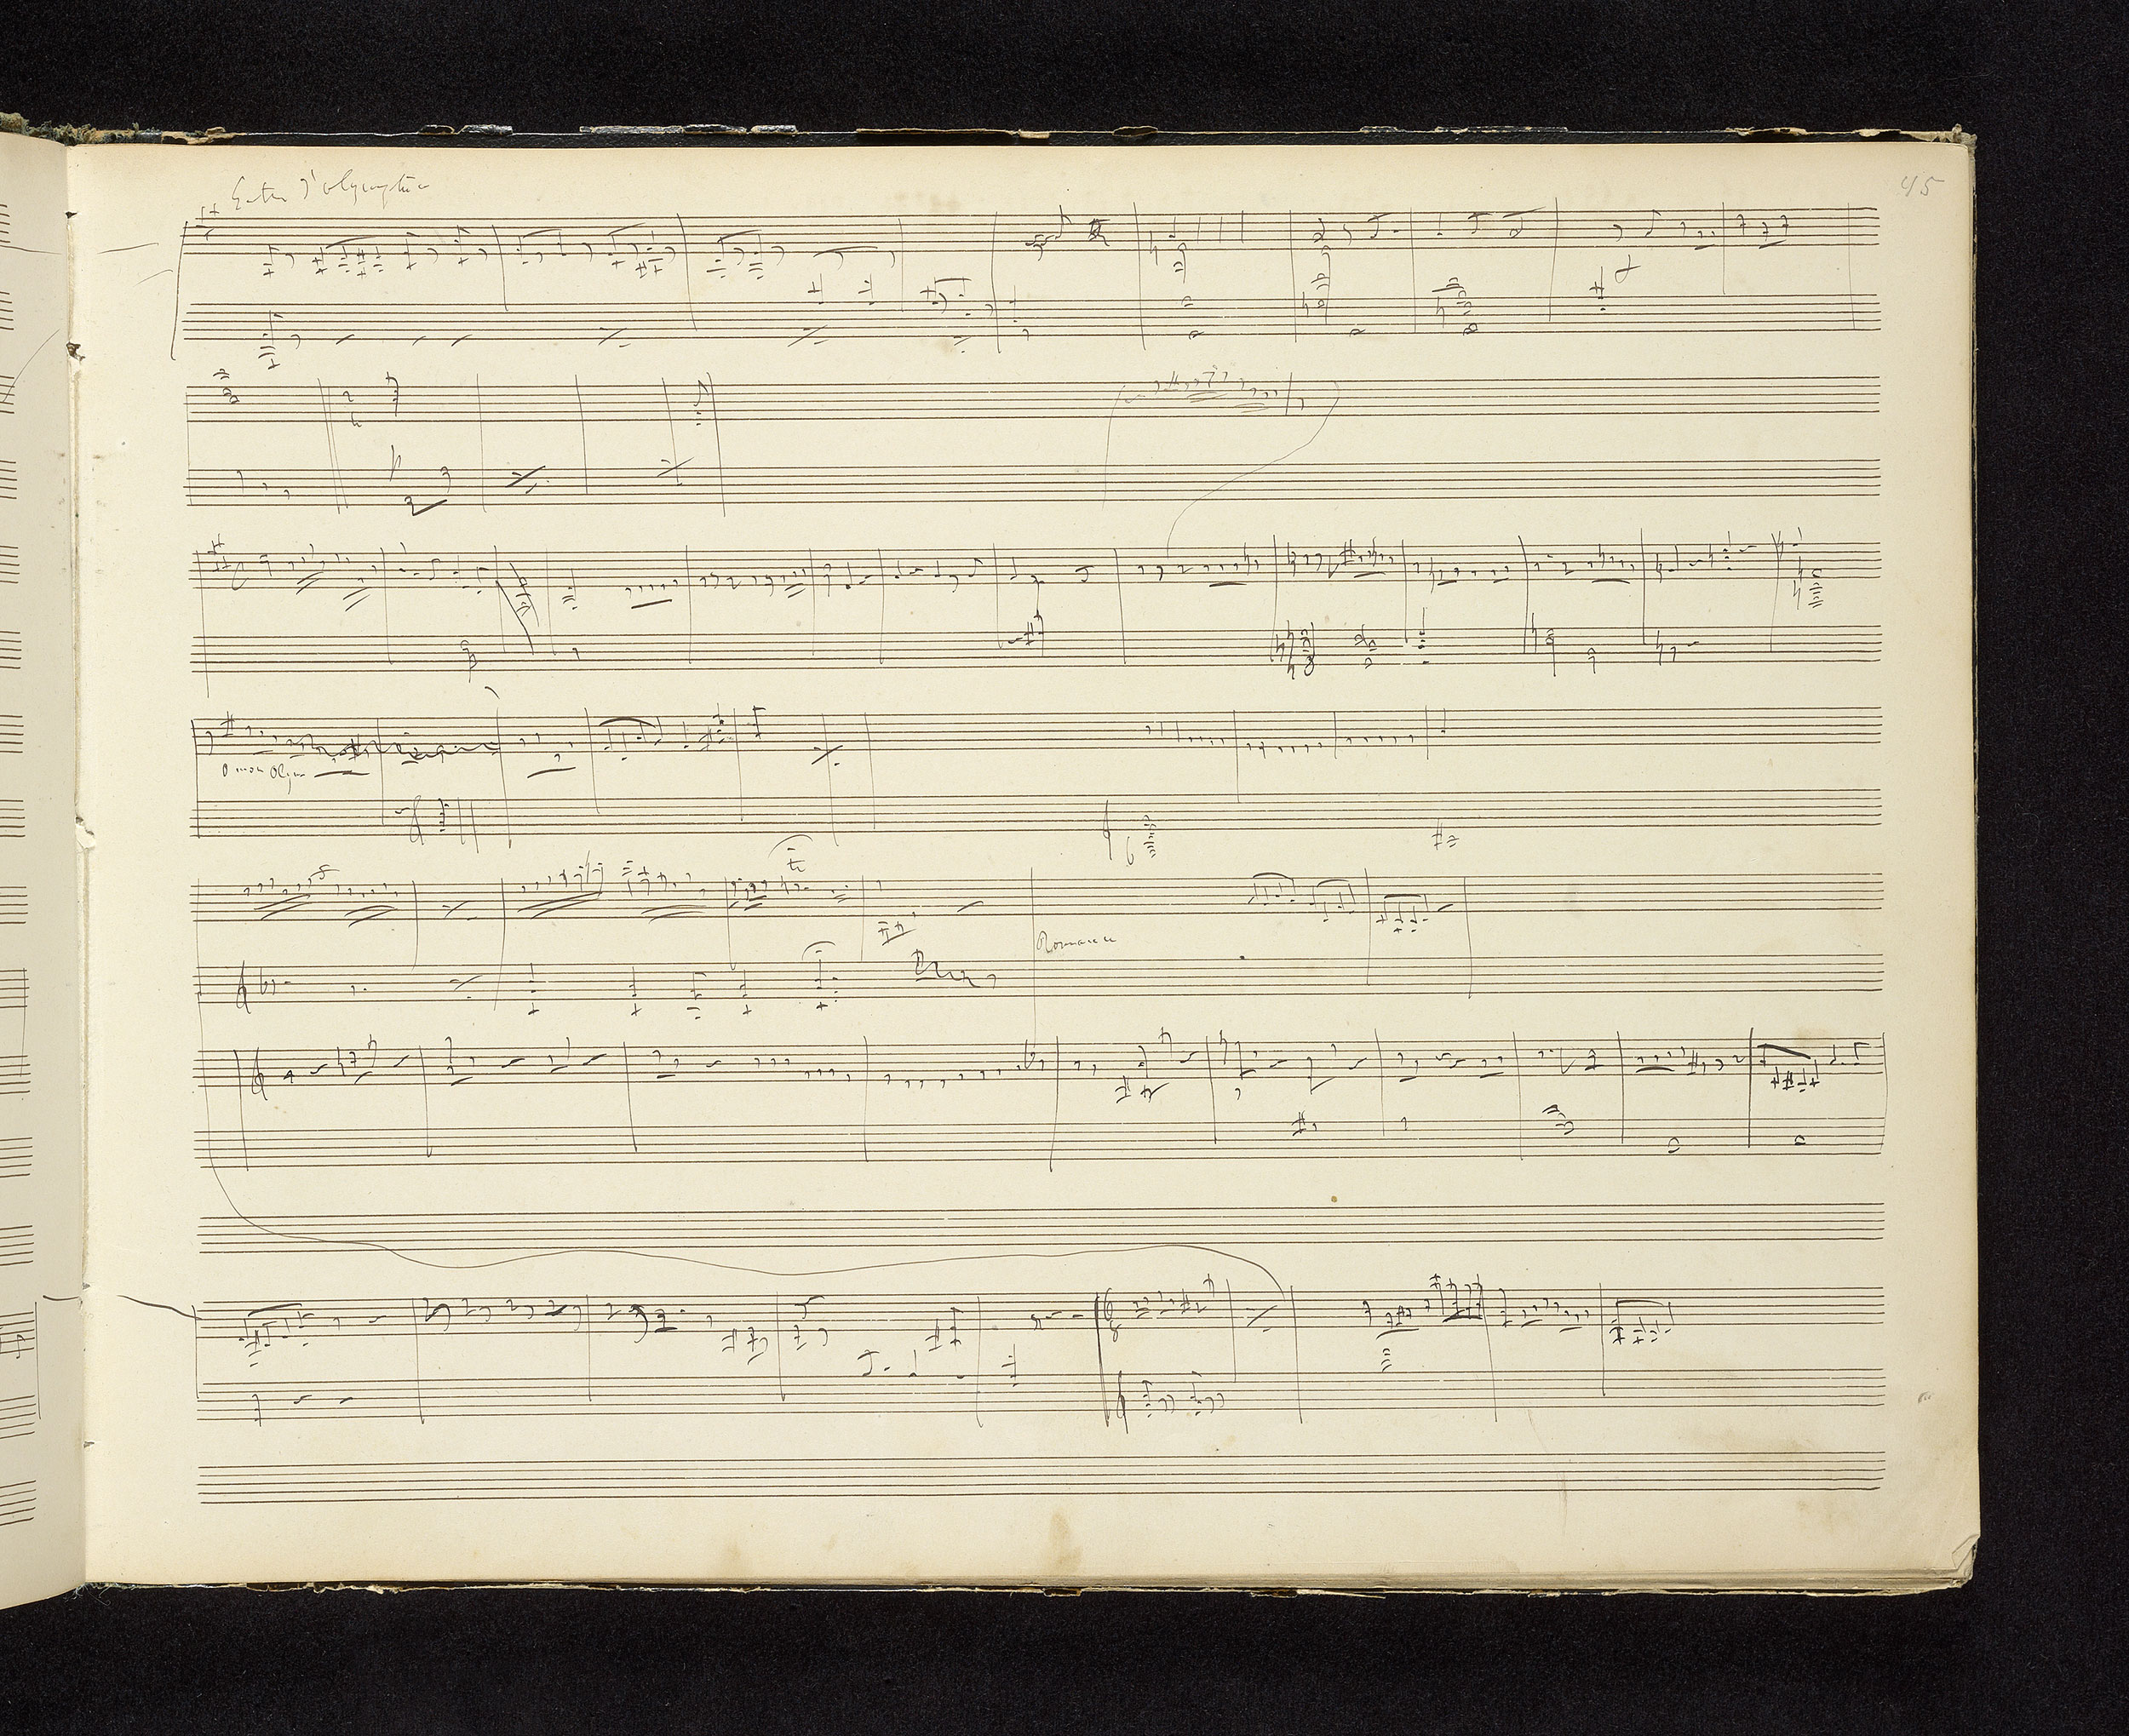 Entrée d'olympia
45
O mon Olym
tr
Romance